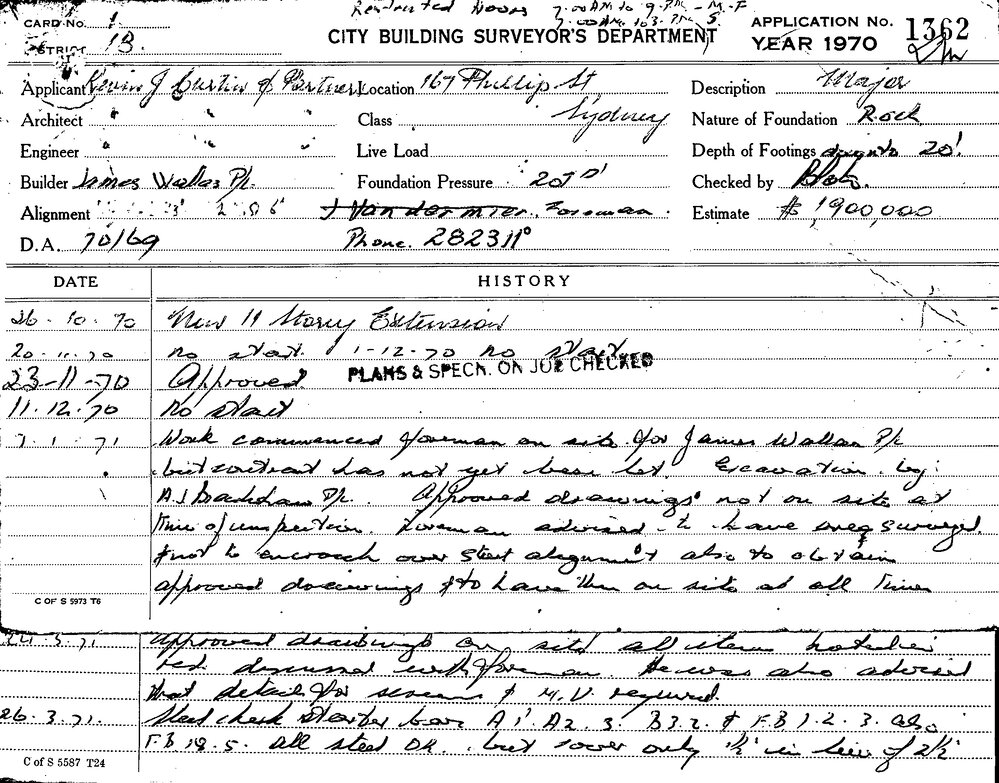 Restricted Hours 7.00AM to 9.PM - M-F
7.00AM. to 3.PM. S.
CARD No. 1
DISTRICT 1B.
CITY BUILDING SURVEYOR'S DEPARTMENT
APPLICATION No. 1362
YEAR 1970
Applicant Kevin J Curtin & Partners Location 167 Phillip St Description Major
Architect " Class Sydney Nature of Foundation Rock
Engineer " Live Load Depth of Footings down to 20'.
Builder James Wallas P/L. Foundation Pressure 20T □' Checked by
Alignment Foreman. Estimate $1900,000
D.A. 70/69 Phone. 282311
DATE HISTORY
26.10.70 New 11 Storey Extension
20.11.70 no start. 1-12-70 no start
23-11-70 Approved. PLANS & SPECN. ON JOB CHECKED
11.12.70 no start
7.1.71 Work commenced foreman on site for James Wallas P/L
but contract has not yet been let. Excavation by:
A.J Bradshaw P/L. Approved drawings not on site at
time of inspection. Foreman advised to have area surveyed
& not to encroach over street alignment also to obtain
approved drawings & to have them on site at all times
C OF S 5973 T6
24.3.71 Approved drawings on site all items noted in
red discussed with foreman. He was also advised
that details for screens & M.V. required.
26.3.71. Steel check starter bars A1. A2. 3. B3.2. & F.B 1.2.3. also
F.B 18.5. all steel OK. but cover only 1½" in lieu of 2½"
C of S 5587 T24